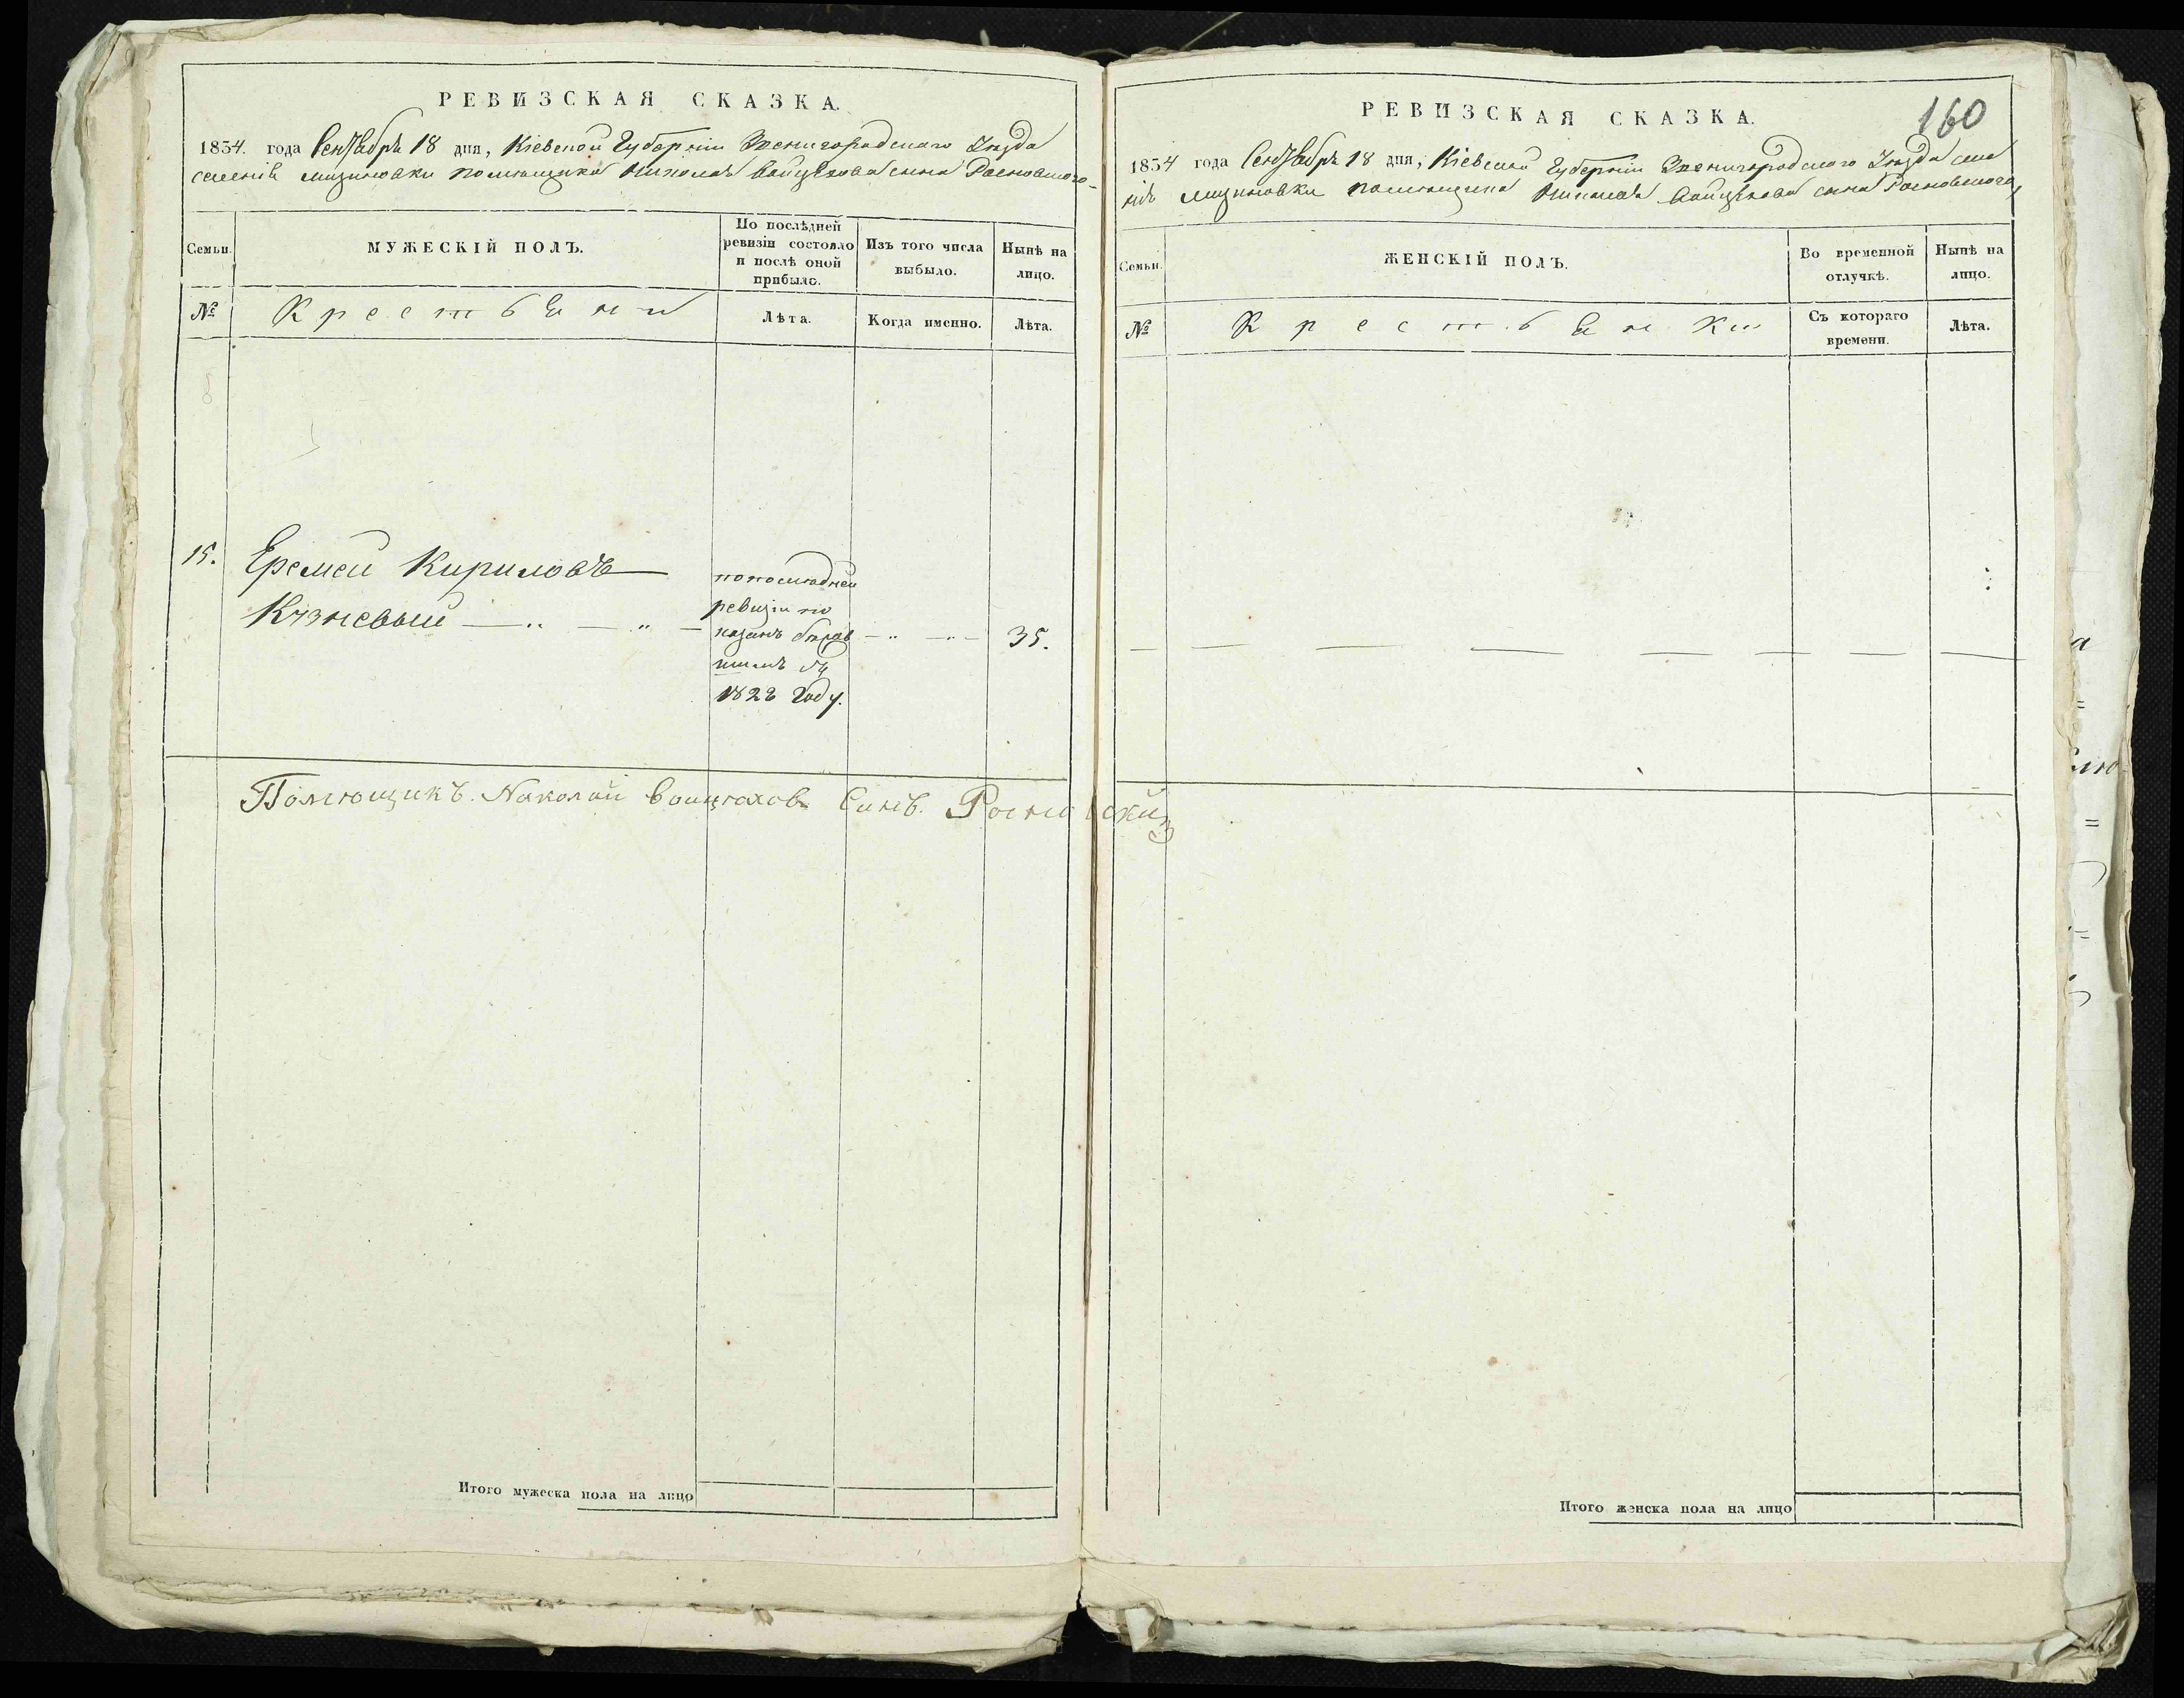 РЕВИЗСКАЯ СКАЗКА.
1834. года Сентября 18 дня, Кіевской Губерніи Звенигородскаго Уезда
селенія Мизиновки помещика Николая Войцехова сына Росновского
Семьи.
МУЖЕСКІЙ ПОЛЪ.
По послѣдней
ревизіи состояло
и послѣ оной
прибыло.
Изъ того числа
выбыло.
Нынѣ на
лицо.
№
Крестьяни
Лѣта.
Когда именно.
Лѣта.
15.
Еремей Кириловъ
по последней
ревизіи по
казанъ бежав
шимъ
1822 году.
35.
Помющикъ. Николай Войцюхов Синъ. Росновский
Итого мужеска пола на лицо
160
РЕВИЗСКАЯ СКАЗКА.
1834 года Сентября 18 дня, Кіевской Губерніи Звенигородского Уезда селе
нія Мизиновки помещика Николая Войцехова сына Росновского,
Семьи.
ЖЕНСКІЙ ПОЛЪ.
Во временной
отлучкѣ.
Нынѣ на
лицо.
№
Крестьянки
Съ котораго
времени.
Лѣта.
Итого женска пола на лицо